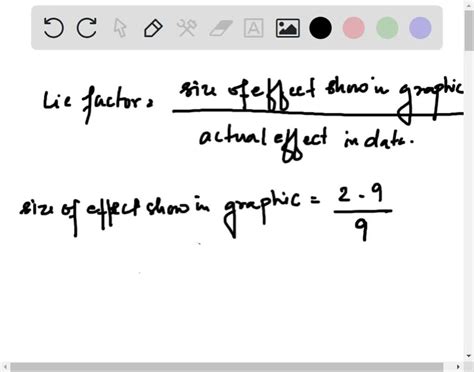 Lie factor = size of effect show in graphic
actual effect in data.
size of effect show in graphic = 2 - 9
9